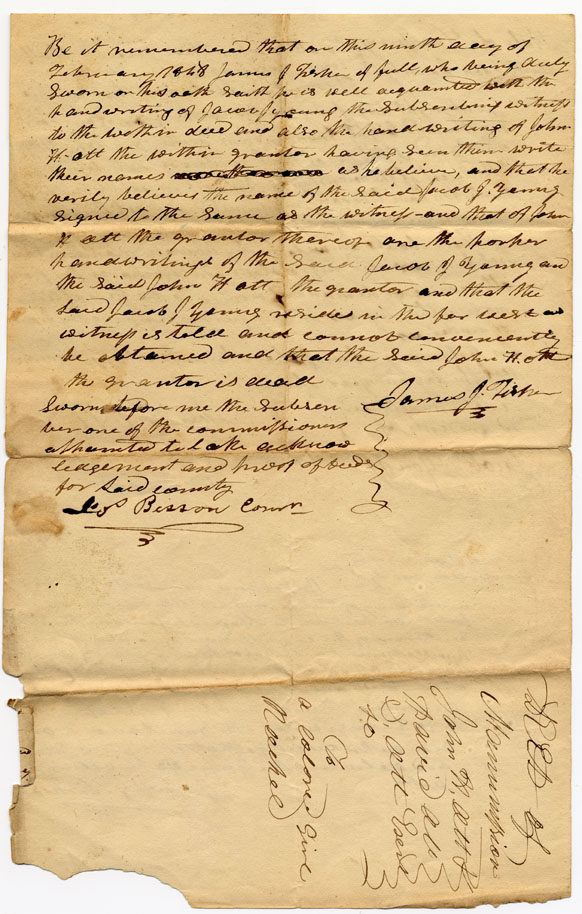 Be it remembered that on this ninth day of
February 1848 James J Fisher of full, who being duly
Sworn on his oath Saith he is well acquainted with the
handwriting of Jacob J young the Subscribing witness
to the within deed and also the handwriting of John
H. ott the within grantor having Seen them write
their names as he believe, and that he
verily believes the name of the Said Jacob J. Young
Signed to the Same as the witness and that of John
H ott the grantor thereof are the porper
handwritings of the Said Jacob J Young an
the Said John H ott the grantor and that the
Said Jacob J Young resides in the far west as
witness is told and cannot conveniently
be obtained and that the Said John H. ott
the grantor is dead
Sworn before me the Subscri James J. Fisher
ber one of the commissioners
to take acknow
ledgement and proof of deeds
for Said county
Besson Comr
DEED of
Manumission
John H ott &
David
ott
To
a Colored Girl
Rachel